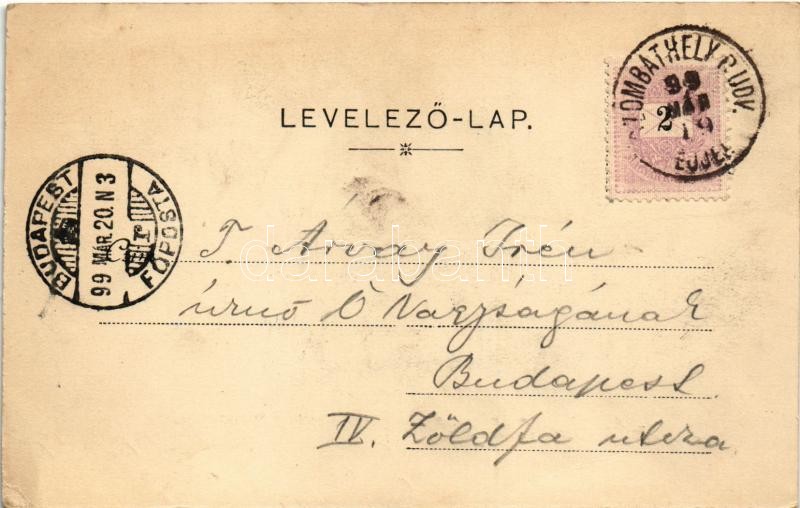 LEVELEZŐ-LAP.
SZOMBATHELY P. UDV.
99
MÁR
19
ÉJJEL
2
BUDAPEST
99 MÁR. 20. N 3
FŐPOSTA
T. Árvay Irén
úrnő Ő Nagyságának
Budapest
IV. Zöldfa utcza
darabanth